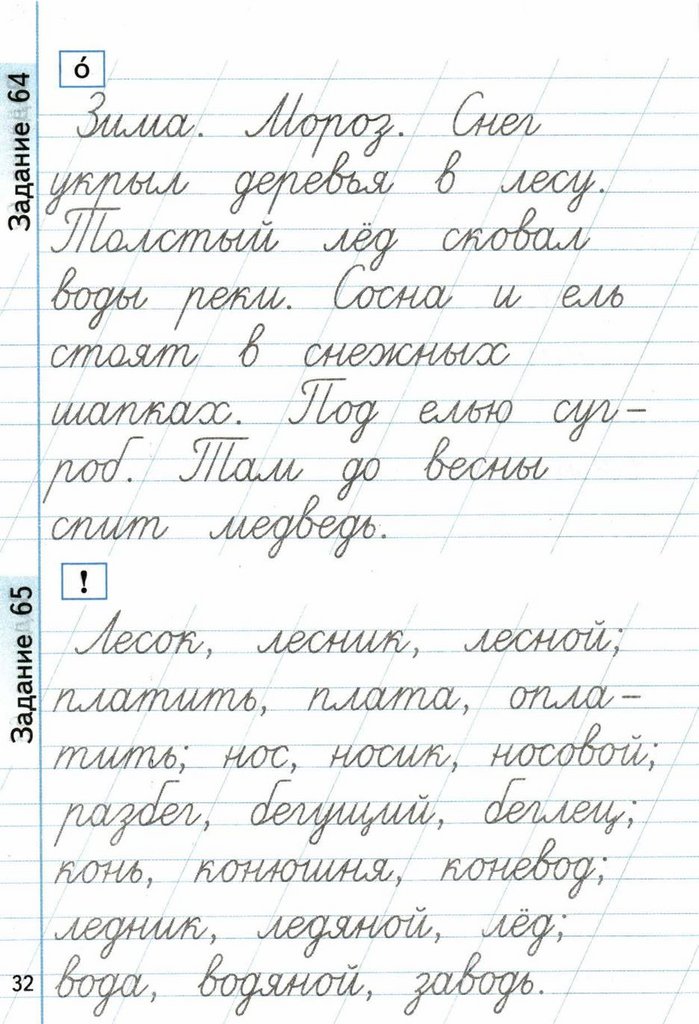 Задание 64
ó
Зима. Мороз. Снег
укрыл деревья в лесу.
Толстый лёд сковал
воды реки. Сосна и ель
стоят в снежных
шапках. Под елью суг-
роб. Там до весны
спит медведь.
Задание 65
!
Лесок, лесник, лесной;
платить, плата, опла-
тить; нос, носик, носовой;
разбег, бегущий, беглец;
конь, конюшня, коневод;
ледник, ледяной, лёд;
вода, водяной, заводь.
32